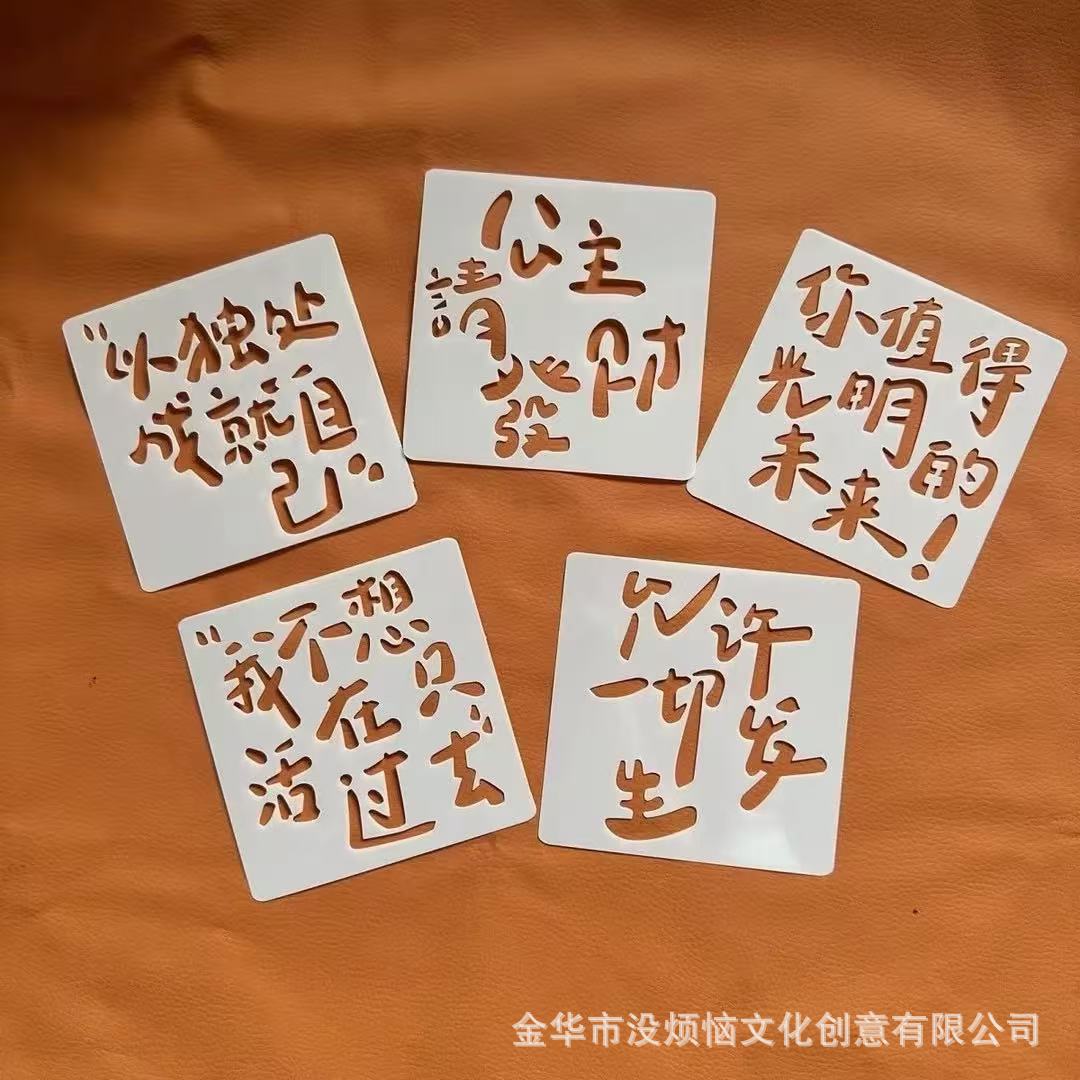 “以独处
成就自
己”
公主
請
發财
你值得
光明的
未来！
“我不想
只
活在
过去”
允许
一切发
生
金华市没烦恼文化创意有限公司